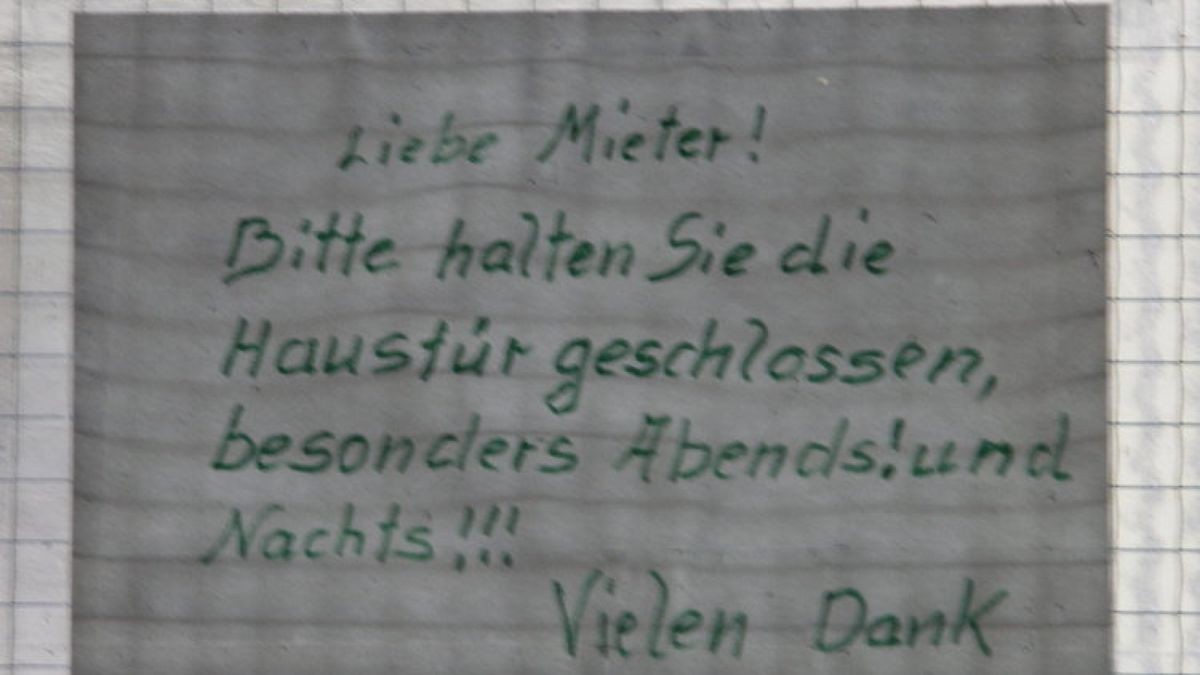 Liebe Mieter!
Bitte halten Sie die
Haustür geschlossen,
besonders Abends! und
Nachts!!!
Vielen Dank